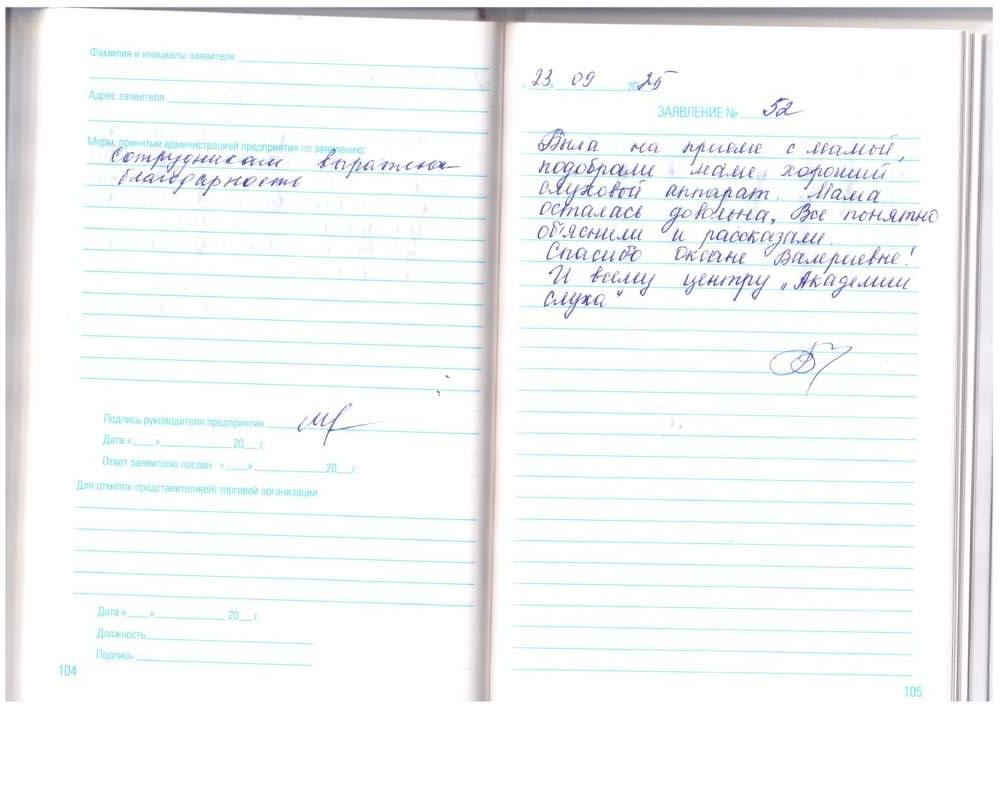 Фамилия и инициалы заявителя
Адрес заявителя
Меры, принятые администрацией предприятия по заявлению:
Сотрудникам выражена
благодарность
Подпись руководителя предприятия
Дата «___»____________20___г.
Ответ заявителю послан «___»____________20___г.
Для отметок представителя(ей) торговой организации
Дата «___»____________20___г.
Должность
Подпись
104
23 09 2025
ЗАЯВЛЕНИЕ № 52
Была на приеме с мамой,
подобрали маме хороший
слуховой аппарат. Мама
осталась довольна. Все понятно
объяснили и рассказали.
Спасибо Оксане Валериевне!
И всему центру „Академии
слуха"
105